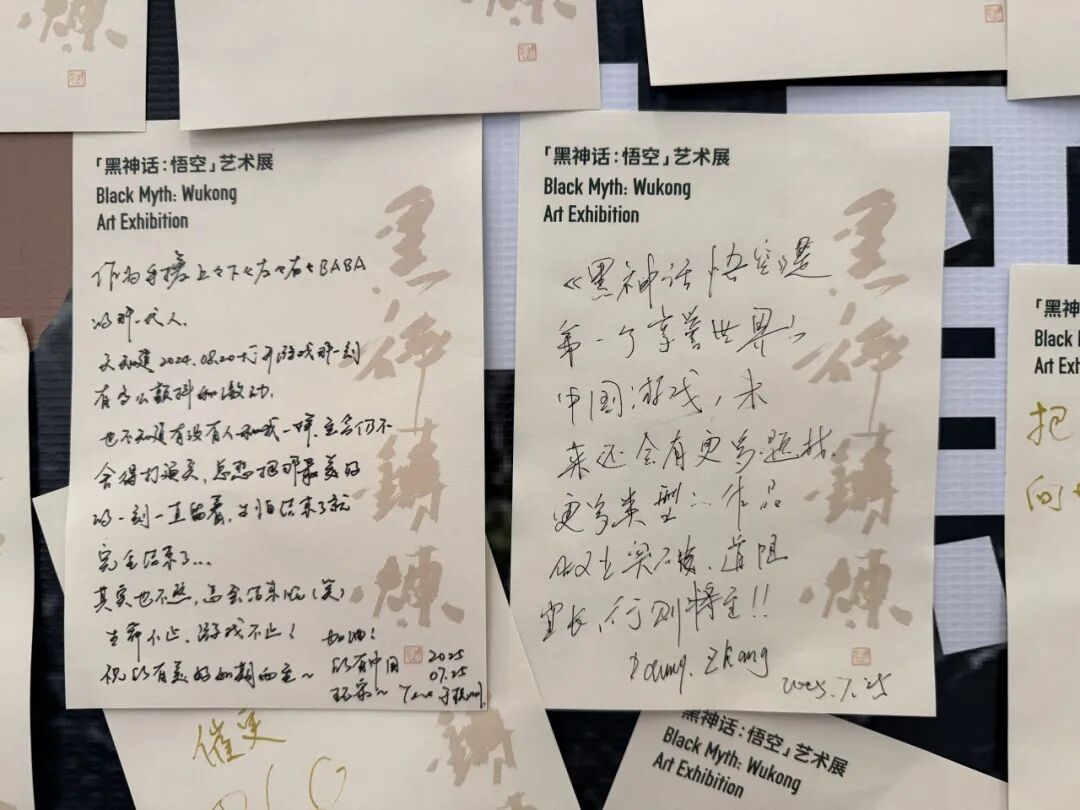 「黑神话:悟空」艺术展
Black Myth: Wukong
Art Exhibition
作为手搓上上下下左左右右BABA
的那一代人.
天知道2024.08.20打开游戏那一刻
有多么颤抖和激动.
也不知道有没有人和我一样.至今仍不
舍得打通关,总想把那最美的
的一刻一直留着,生怕结束了就
完全结束了...
其实也不怕,总会结束嘛(笑)
生命不止,游戏不止!
祝所有美好如期而至~
加油!
所有中国
玩家~
2025
07.25
「黑神话:悟空」艺术展
Black Myth: Wukong
Art Exhibition
《黑神话悟空》是
第一个享誉世界的
中国游戏,未
来还会有更多题材、
更多类型的作品
道阻
且长,行则将至!!
Zhang
2025.7.25
黑神话锦悚
「黑神
Black
Art Ex
把
向
催更
DLC
黑神话:悟空」艺术展
Black Myth: Wukong
Art Exhibition